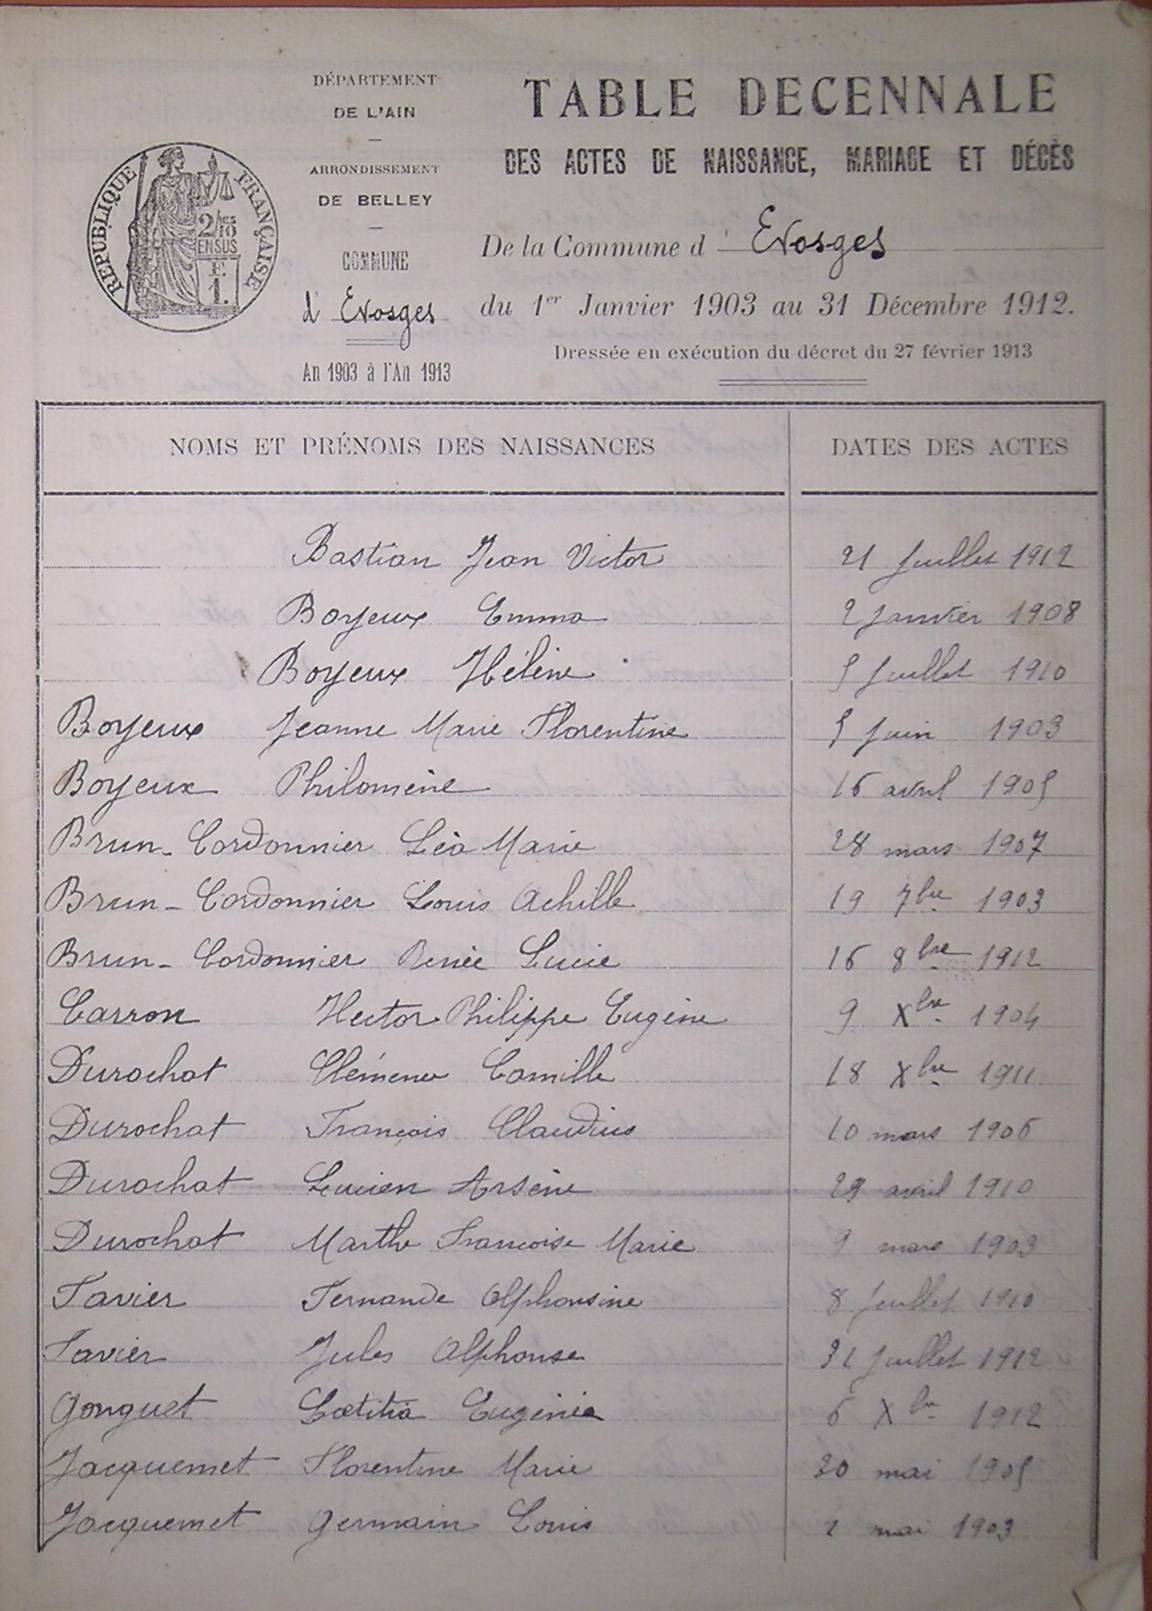 DÉPARTEMENT
DE L'AIN
ARRONDISSEMENT
DE BELLEY
COMMUNE
d'Evosges
An 1903 à l'An 1913
RÉPUBLIQUE FRANÇAISE
2/10
EN SUS
E
1.
TABLE DECENNALE
DES ACTES DE NAISSANCE, MARIAGE ET DÉCÈS
De la Commune d' Evosges
du 1er Janvier 1903 au 31 Décembre 1912.
Dressée en exécution du décret du 27 février 1913
NOMS ET PRÉNOMS DES NAISSANCES DATES DES ACTES
Bastian Jean Victor 21 Juillet 1912
Boyeux Emma 2 Janvier 1908
Boyeux Hélène 5 Juillet 1910
Boyeux Jeanne Marie Florentine 5 Juin 1903
Boyeux Philomène 16 avril 1905
Brun-Cordonnier Léa Marie 28 mars 1907
Brun-Cordonnier Louis Achille 19 7bre 1903
Brun-Cordonnier Renée Lucie 16 8bre 1912
Carron Hector Philippe Eugène 9 Xbre 1904
Durochat Clémence Camille 18 Xbre 1911
Durochat François Claudius 10 mars 1906
Durochat Lucien Arsène 29 avril 1910
Durochat Marthe Françoise Marie mars 1903
Favier Fernande Alphonsine 8 Juillet 1910
Favier Jules Alphonse 31 Juillet 1912
Gonguet Lœtitia Eugénie 6 Xbre 1912
Jacquemet Florentine Marie 30 mai 1905
Jacquemet Germain Louis 2 mai 1903